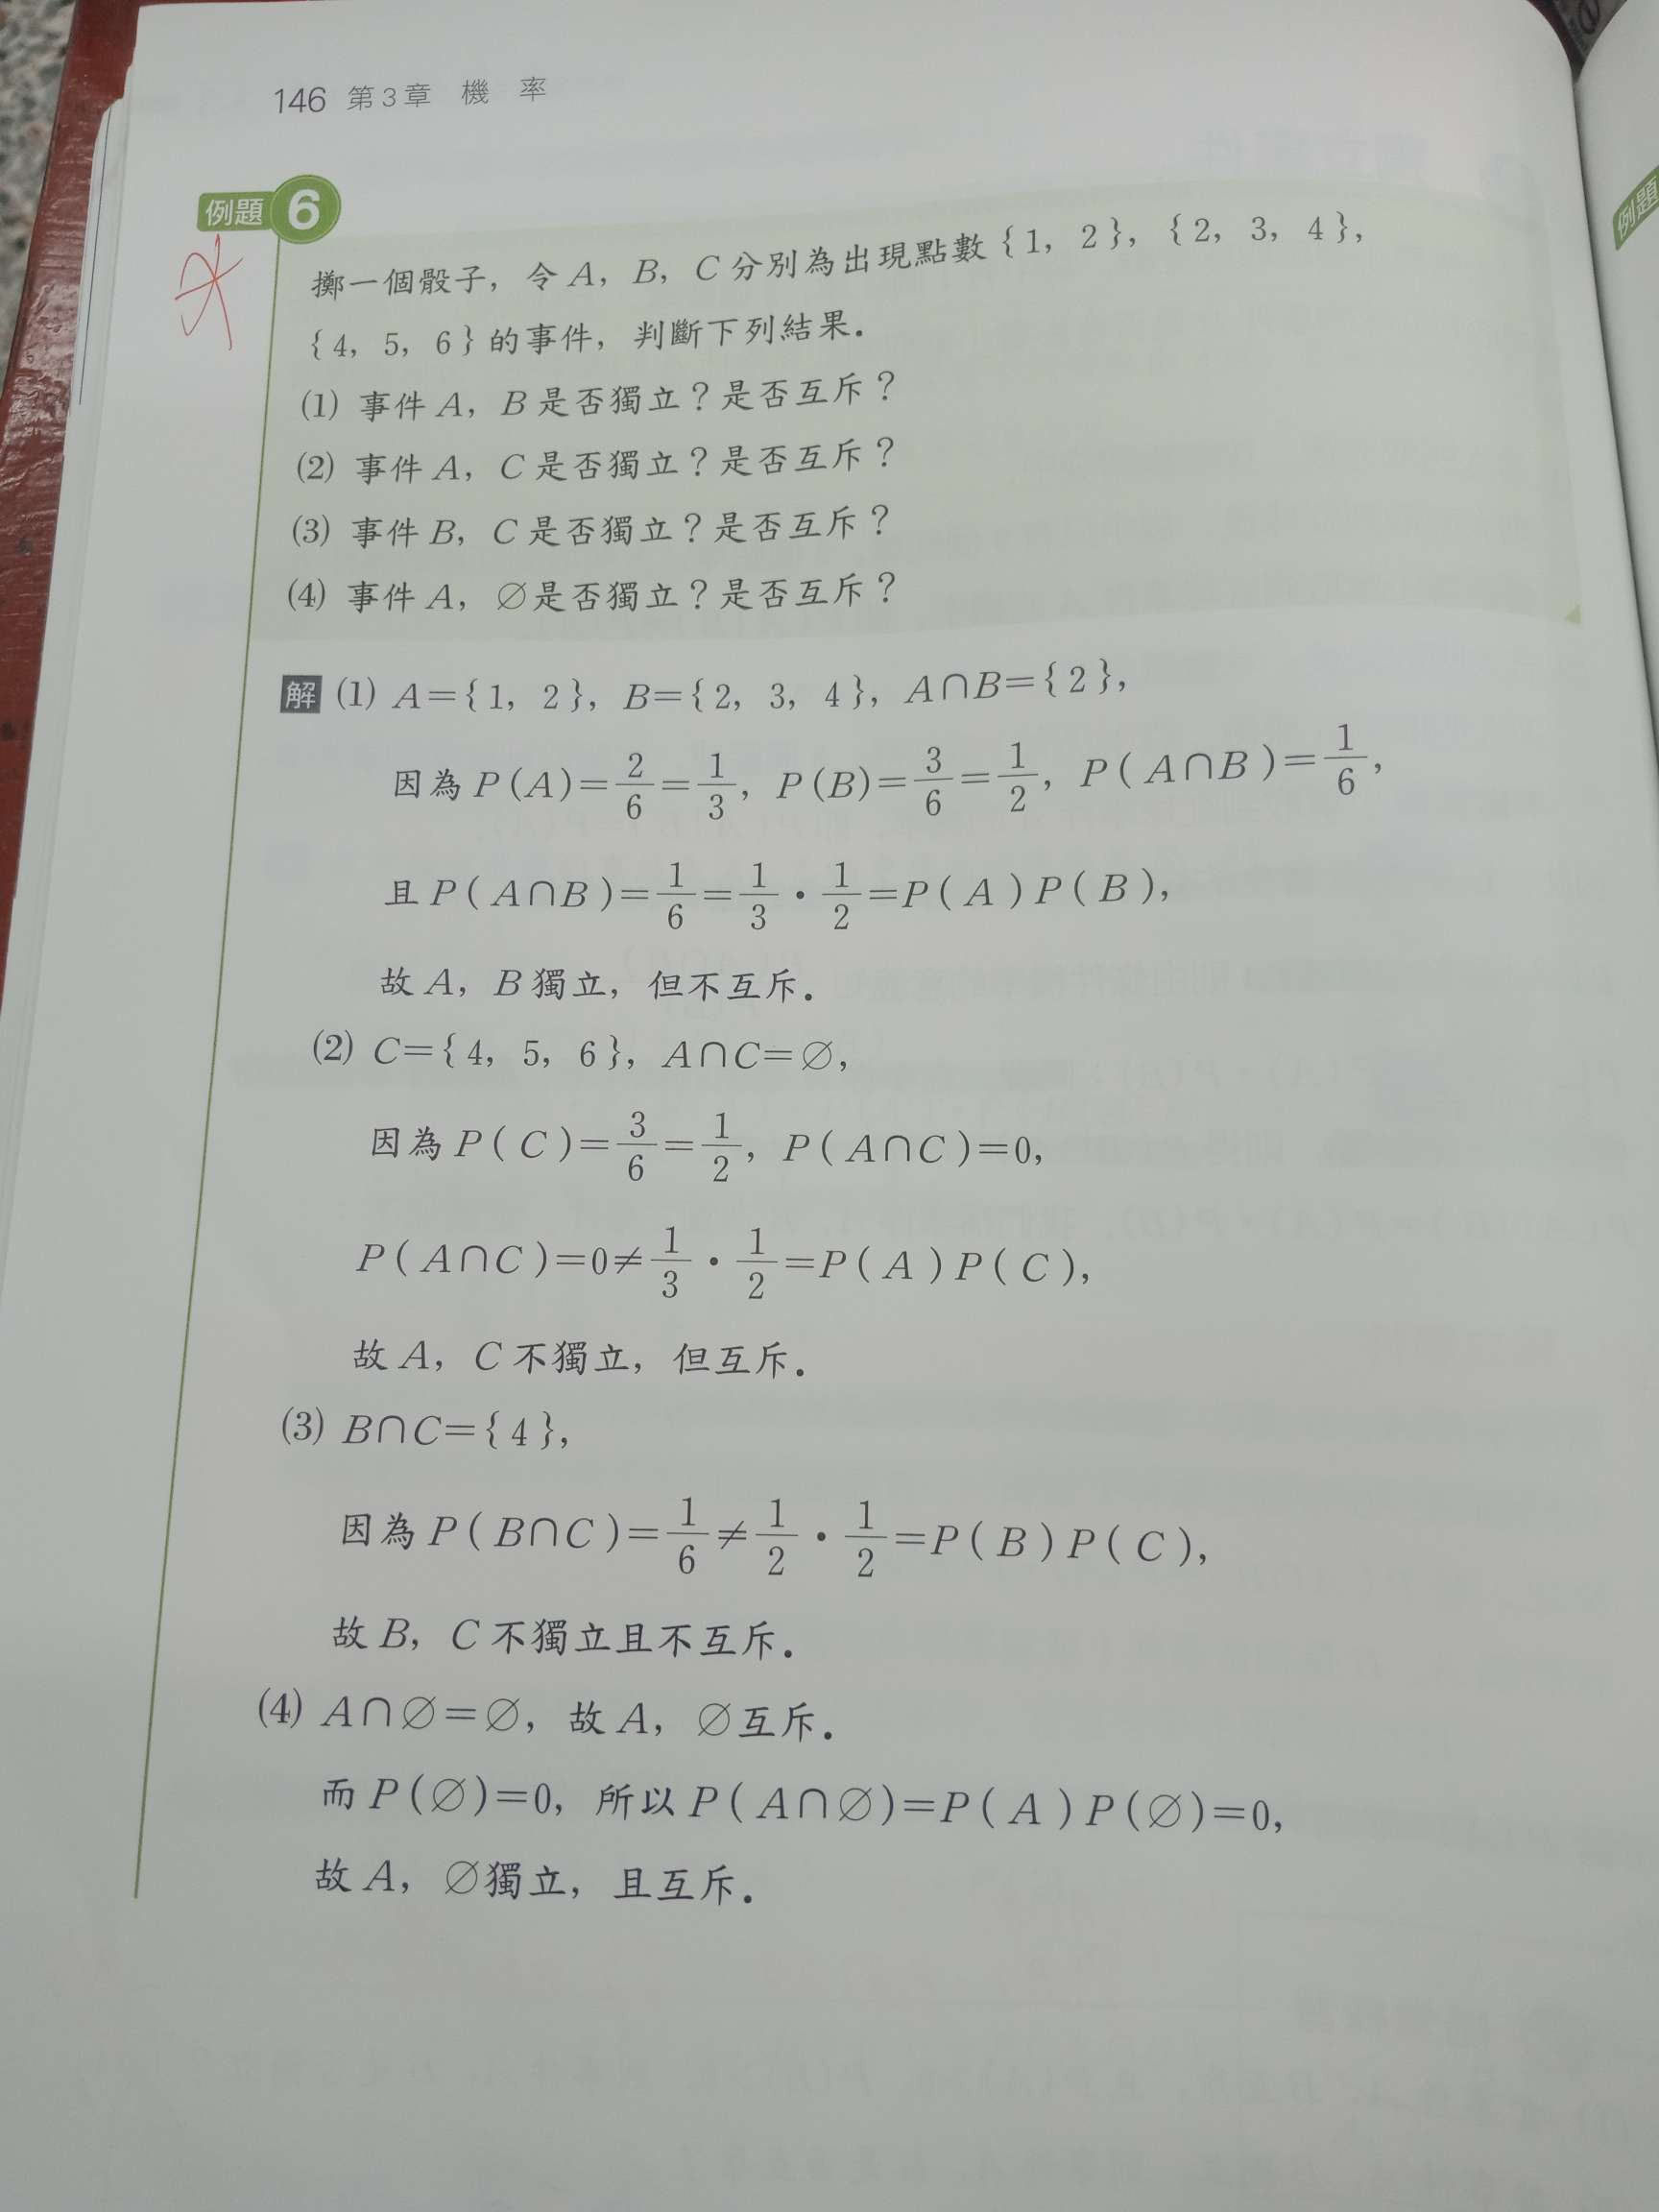 146 第3章 機 率
例題 6
擲一個骰子，令 A，B，C 分別為出現點數 {1，2}，{2，3，4}，
{4，5，6} 的事件，判斷下列結果．
(1) 事件 A，B 是否獨立？是否互斥？
(2) 事件 A，C 是否獨立？是否互斥？
(3) 事件 B，C 是否獨立？是否互斥？
(4) 事件 A，∅是否獨立？是否互斥？
解 (1) A={1，2}，B={2，3，4}，A∩B={2}，
因為 P(A)=2/6=1/3，P(B)=3/6=1/2，P(A∩B)=1/6，
且 P(A∩B)=1/6=1/3・1/2=P(A)P(B)，
故 A，B 獨立，但不互斥．
(2) C={4，5，6}，A∩C=∅，
因為 P(C)=3/6=1/2，P(A∩C)=0，
P(A∩C)=0≠1/3・1/2=P(A)P(C)，
故 A，C 不獨立，但互斥．
(3) B∩C={4}，
因為 P(B∩C)=1/6≠1/2・1/2=P(B)P(C)，
故 B，C 不獨立且不互斥．
(4) A∩∅=∅，故 A，∅互斥．
而 P(∅)=0，所以 P(A∩∅)=P(A)P(∅)=0，
故 A，∅獨立，且互斥．
例題